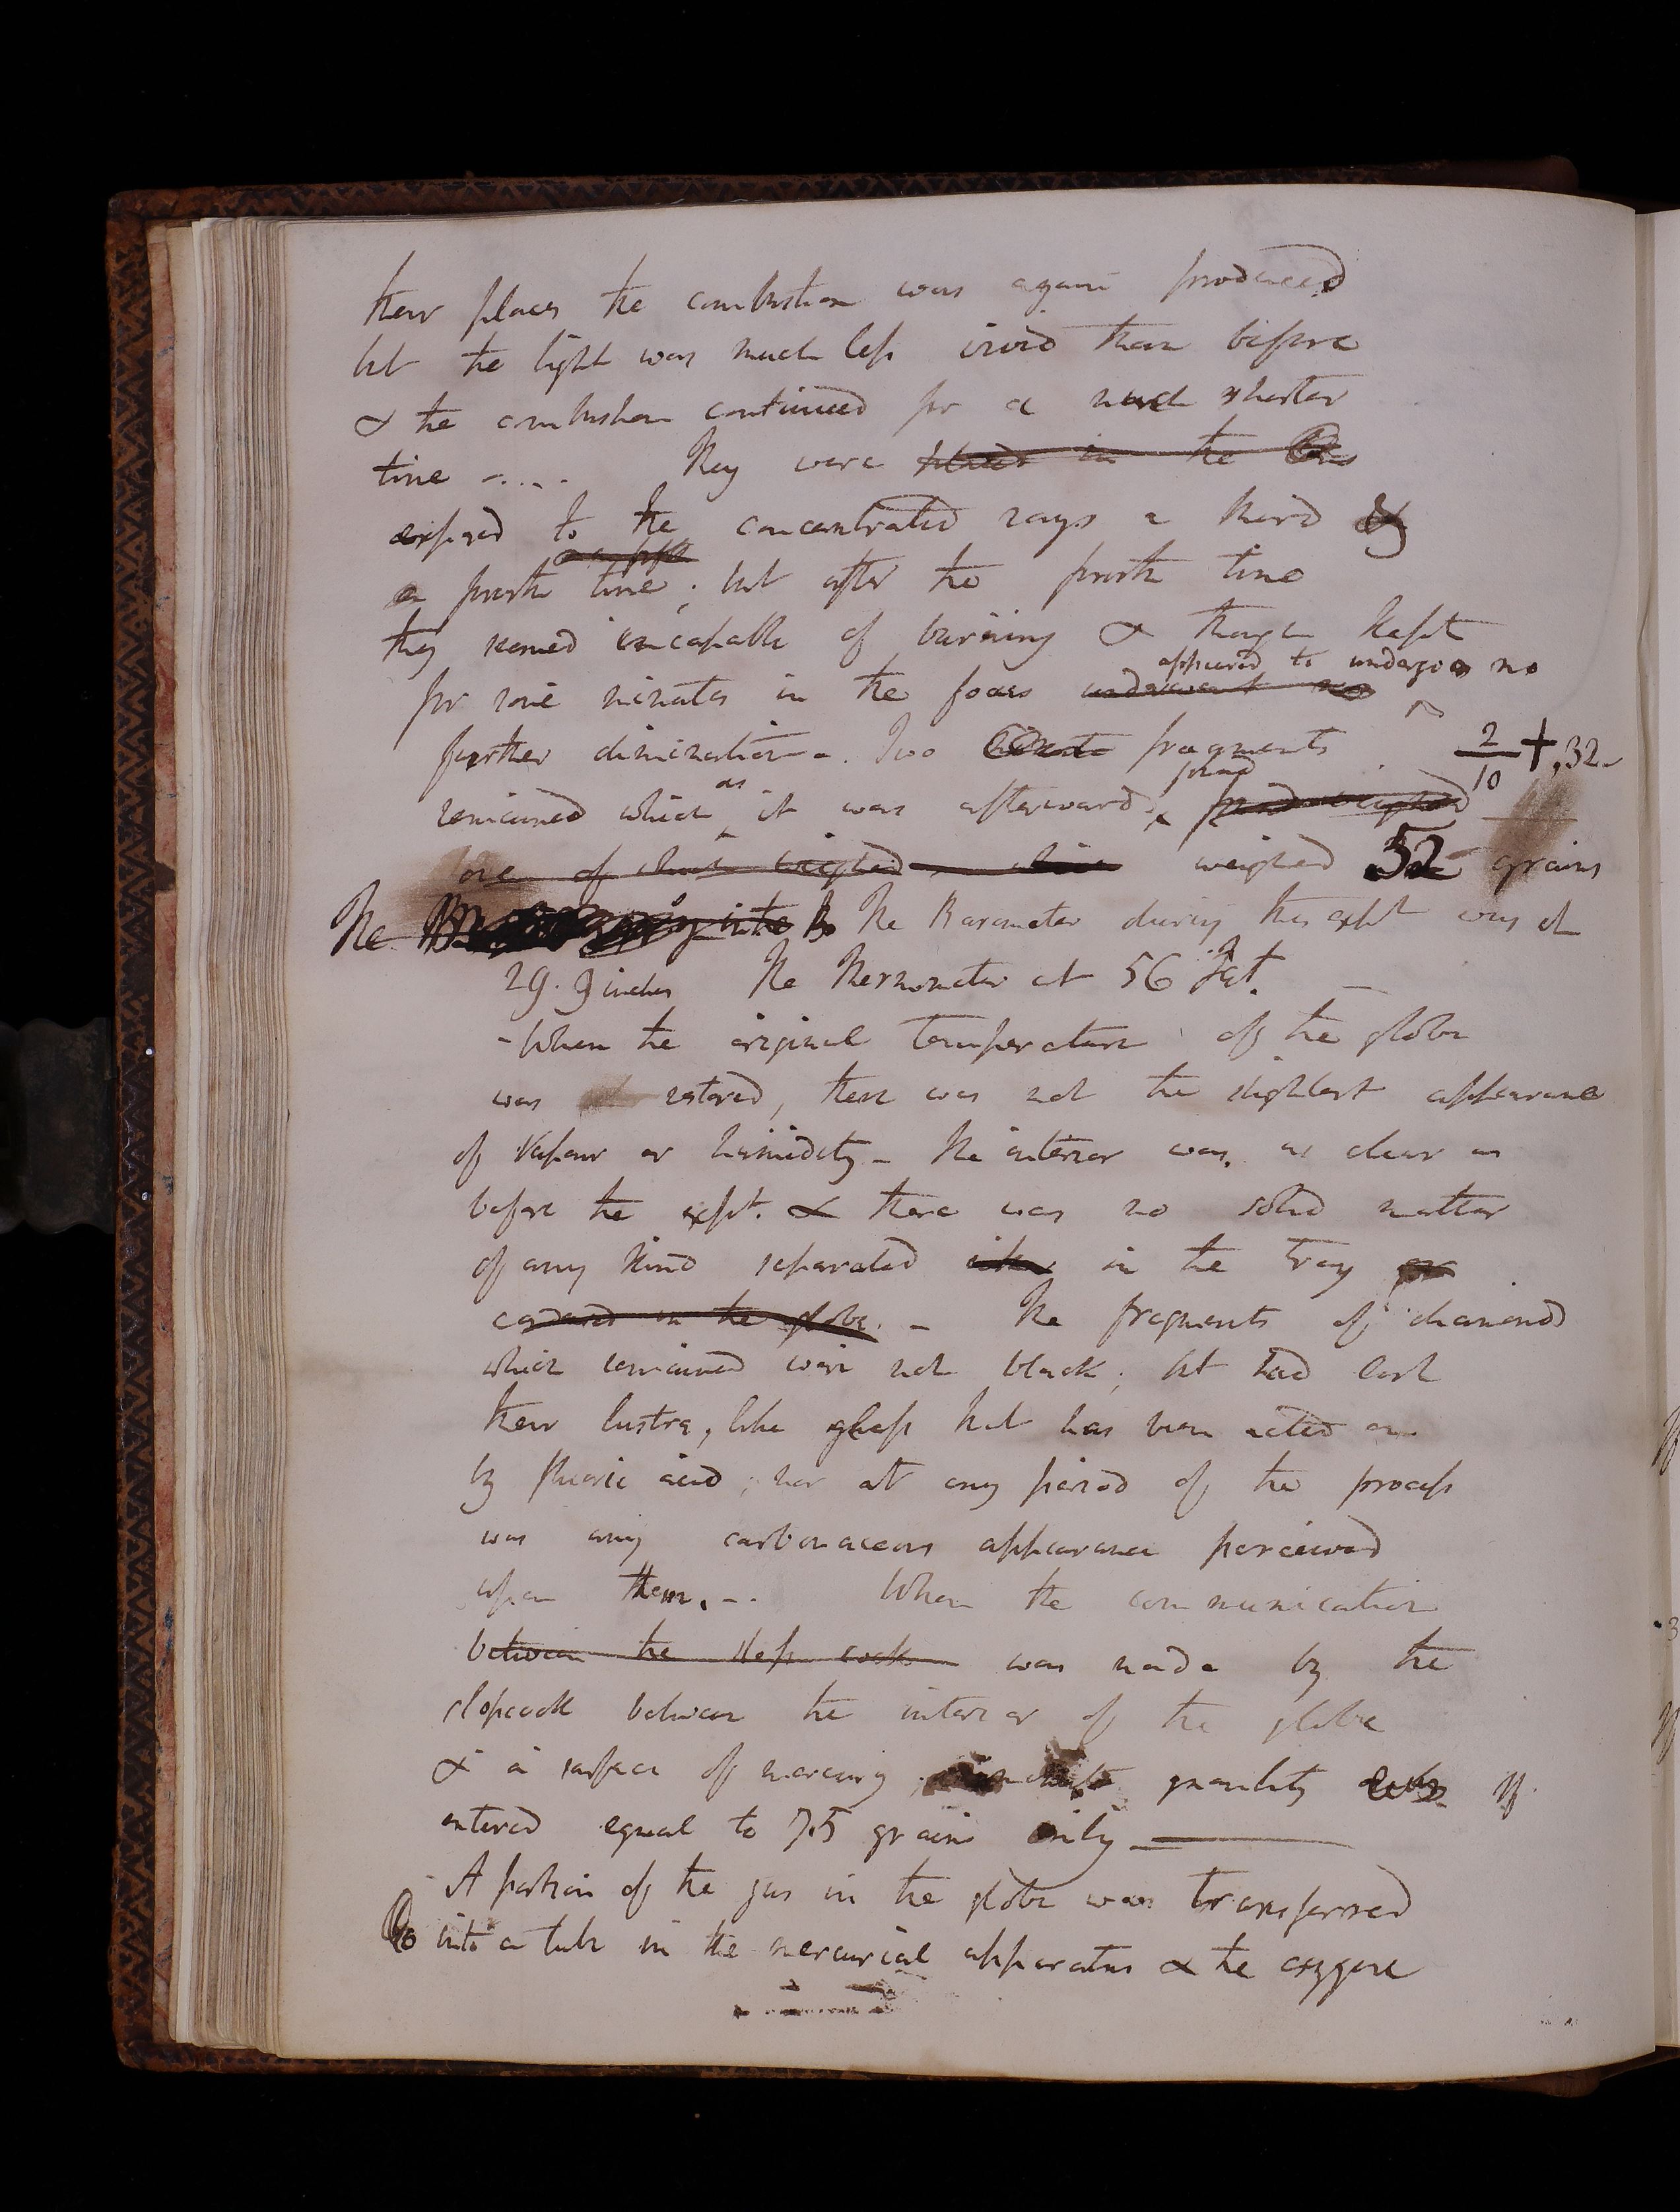 their places the combustion was again produced
but the light was much less vivid than before
& the combustion continued for a much shorter
time -.... They were placed in the
exposed to the concentrated rays a third &
a fourth time; but after the fourth time
they seemed incapable of burning & though kept
appeared to undergo no
for some minutes in the focus underwent no
further diminution -. Two fragments 2/10 + ,32-
as found
remained which it was afterwards found weighed
one of which weighed weighed 52 grains
The The Barometer during this expt was at
29.9 inches The Thermometer at 56 Fat.
- When the original temperature of the globe
was restored, there was not the slightest appearance
of vapour or humidity - The interior was as clear as
before the expt. & there was no solid matter
of any kind separated in the tray or
in the globe. - The fragments of diamond
which remained were not black; but had lost
their lustre, like glass that has been acted on
by fluoric acid; nor at any period of the process
was any carbonaceous appearance perceived
upon them. -. When the communication
between the stop cock was made by the
stopcock between the interior of the globe
& a surface of mercury quantity only
entered equal to 7.5 grains only
- A portion of the gas in the globe was transferred
into a tube in the mercurial apparatus & the oxygene